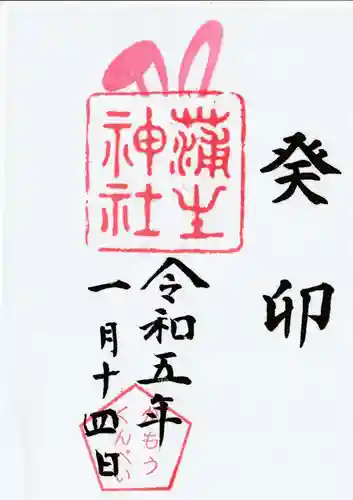 癸卯
蒲生
神社
令和五年
一月十四日
がもう
くんぺい